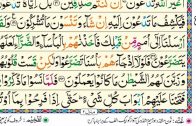 اللّٰهِ تَدْعُوْنَ ۚ اِنْ كُنْتُمْ صٰدِقِيْنَ بَلْ اِيَّاهُ تَدْعُوْنَ
فَيَكْشِفُ مَا تَدْعُوْنَ اِلَيْهِ اِنْ شَآءَ وَتَنْسَوْنَ مَا تُشْرِكُوْنَ وَلَقَدْ
اَرْسَلْنَاۤ اِلٰۤى اُمَمٍ مِّنْ قَبْلِكَ فَاَخَذْنٰهُمْ بِالْبَاْسَآءِ وَالضَّرَّآءِ لَعَلَّهُمْ
يَتَضَرَّعُوْنَ فَلَوْلَاۤ اِذْ جَآءَهُمْ بَاْسُنَا تَضَرَّعُوْا وَلٰكِنْ قَسَتْ
قُلُوْبُهُمْ وَزَيَّنَ لَهُمُ الشَّيْطٰنُ مَا كَانُوْا يَعْمَلُوْنَ فَلَمَّا نَسُوْا
مَا ذُكِّرُوْا بِهٖ فَتَحْنَا عَلَيْهِمْ اَبْوَابَ كُلِّ شَيْءٍ ؕ حَتّٰۤى اِذَا فَرِحُوْا بِمَاۤ